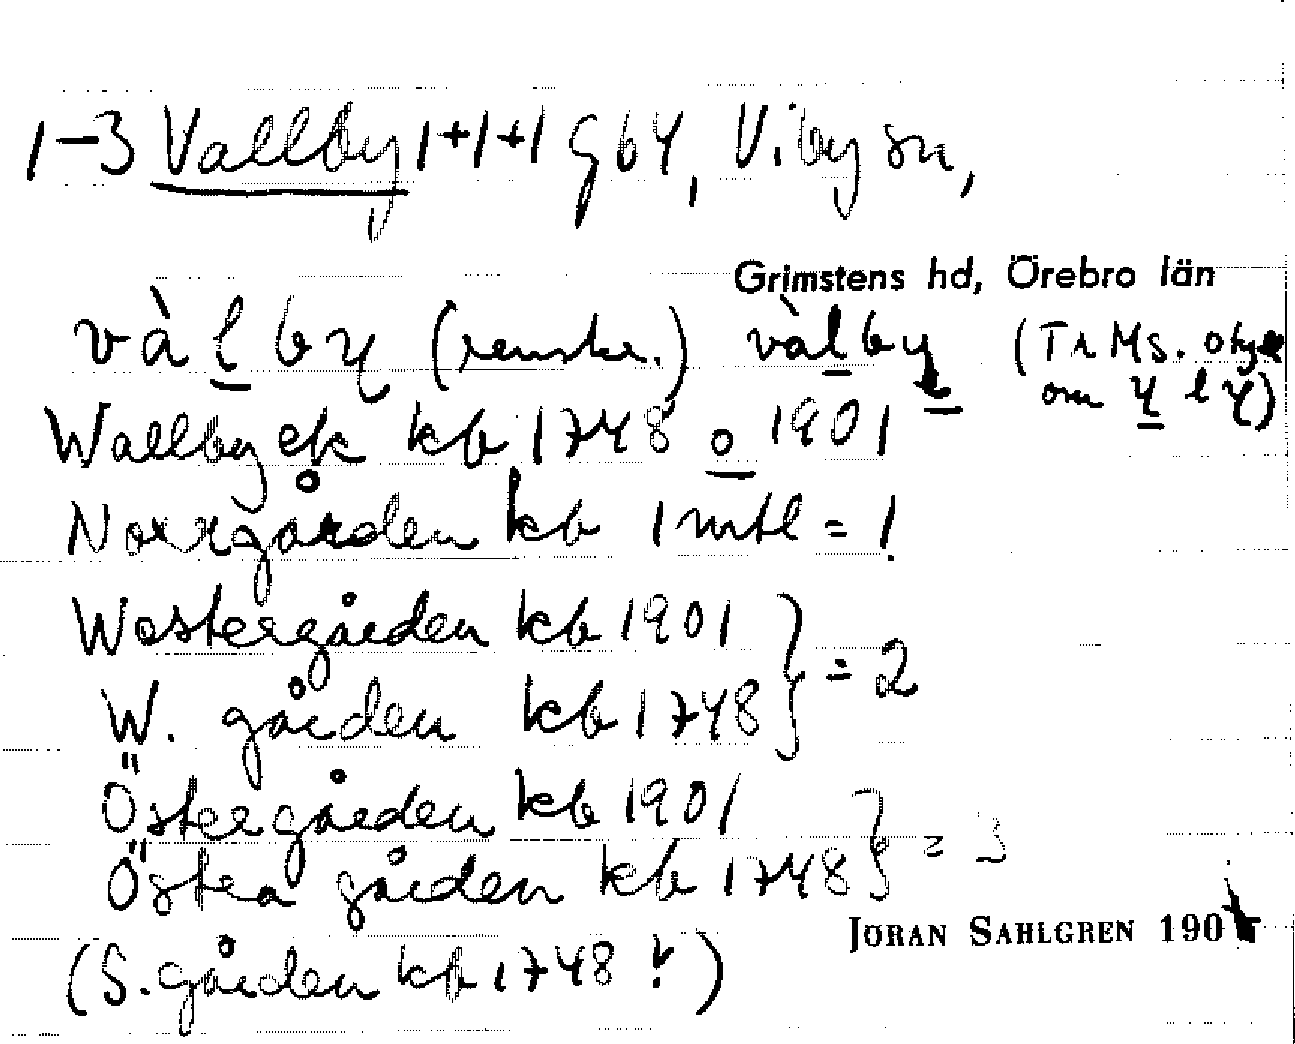 1-3 Vallby 1+1+1 gby, Viby sn,
Grimstens hd, Örebro län
vàlby (renskr.) vàlby (Tr Ms. otyd
om y l y)
Wallby ek kb 1748 o 1901
Norrgården kb 1 mtl = 1
Westergården kb 1901
= 2
W. gården kb 1748
Östergården kb 1901
= 3
Östra gården kb 1748
JÖRAN SAHLGREN 190
(S. gården kb 1748 !)